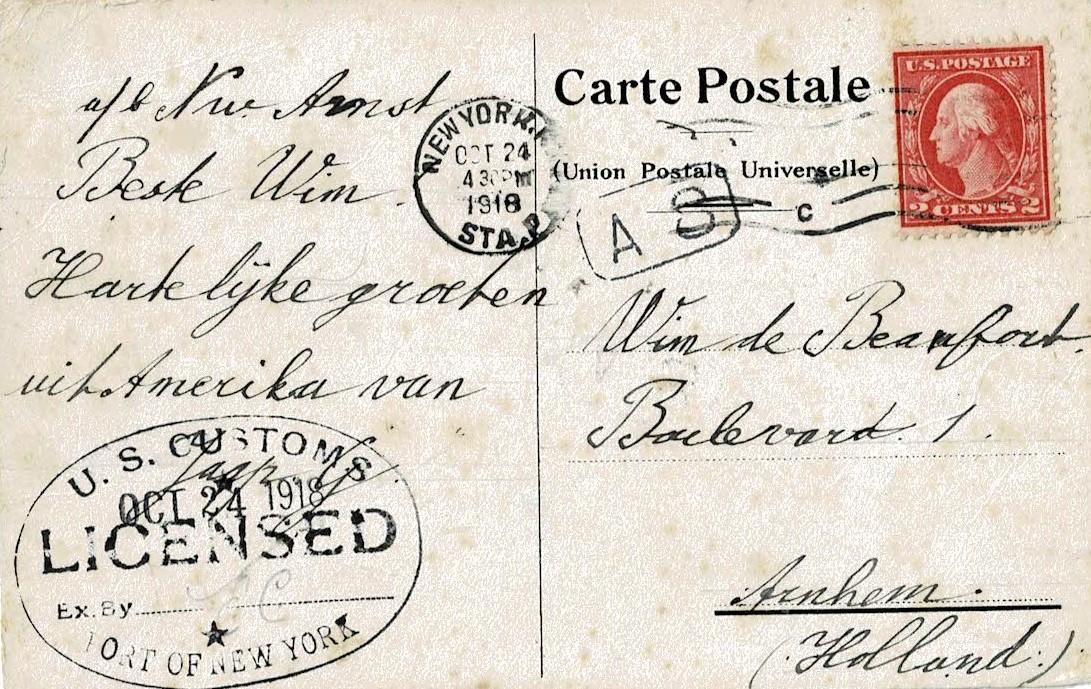 a/b Nw. Amst
Beste Wim.
Hartelijke groeten
uit Amerika van
Jaap
NEW YORK, N.
OCT 24
430PM
1918
STA. P
Carte Postale
(Union Postale Universelle)
U.S. POSTAGE
2 CENTS 2
A S
C
Wim de Beaufort.
Boulevard. 1.
Arnhem.
(Holland.)
U. S. CUSTOMS
OCT 24 1918
LICENSED
Ex. By
PORT OF NEW YORK